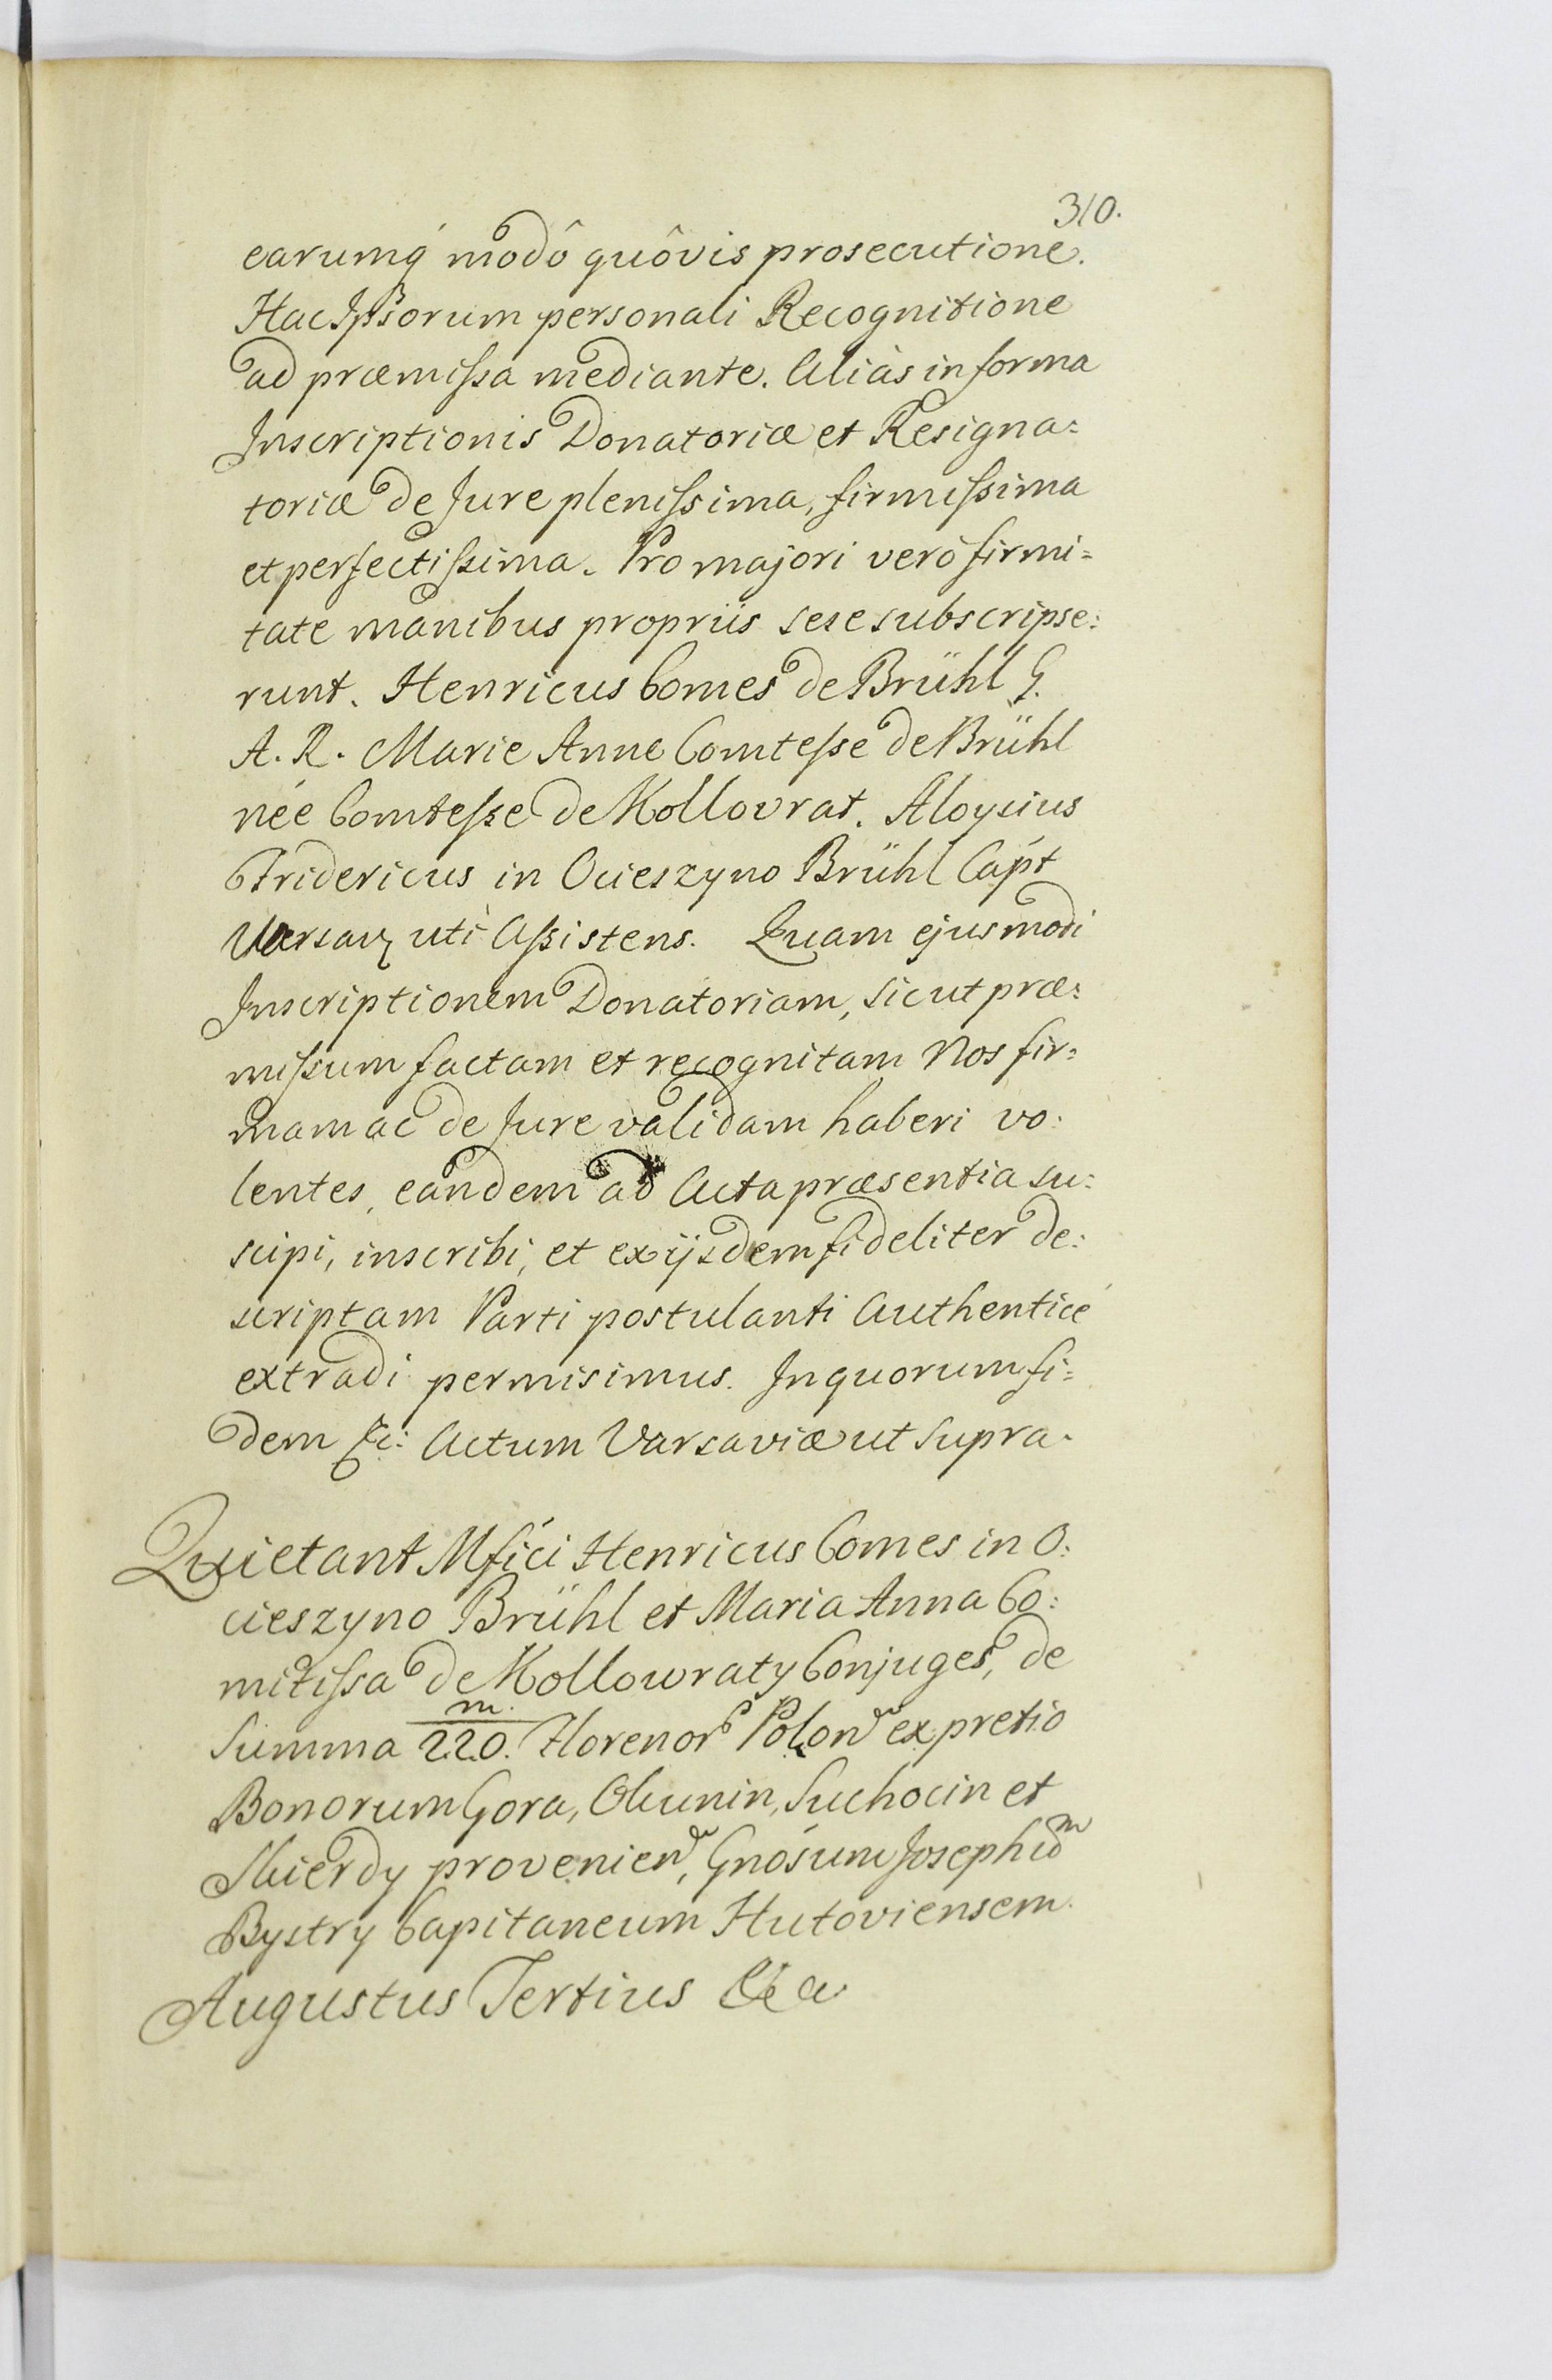 310.
earumq́ modô quôvis prosecutione.
Hac Ipsorum personali Recognitione
ad præmissa mediante. Aliàs in forma
Inscriptionis Donatoriæ et Resigna=
toriæ de Jure plenissima, firmissima
et perfectissima. Pro majori verò firmi=
tate manibus propriis sese subscripse:
runt. Henricus Comes de Brühl G.
A. R. Marie Anne Comtesse de Brühl
née Comtesse de Kollovrat. Aloysius
Fridericus in Ocieszyno Brühl Capt
Varsav utì Assistens. Quam ejusmodi
Inscriptionem Donatoriam, sicut præ:
missum factam et recognitam Nos fir=
mam ac de Jure validam haberi vo:
lentes, eandem ad Acta præsentia su:
scipi, inscribi, et ex ijsdem fideliter de:
scriptam Parti postulanti Authenticè
extradi permisimus. In quorum fi=
dem &c: Actum Varsaviæ ut supra.
Quietant Mfici Henricus Comes in O:
cieszyno Brühl et Maria Anna Co:
mitissa de Kollowraty Conjuges, de
Summa 220.<sup>m.</sup> Florenor Polon ex pretio
Bonorum Gora, Olunin, Suchocin et
Skierdy provenien, Gnosum Josephum
Bystry Capitaneum Hutoviensem.
Augustus Tertius &c a